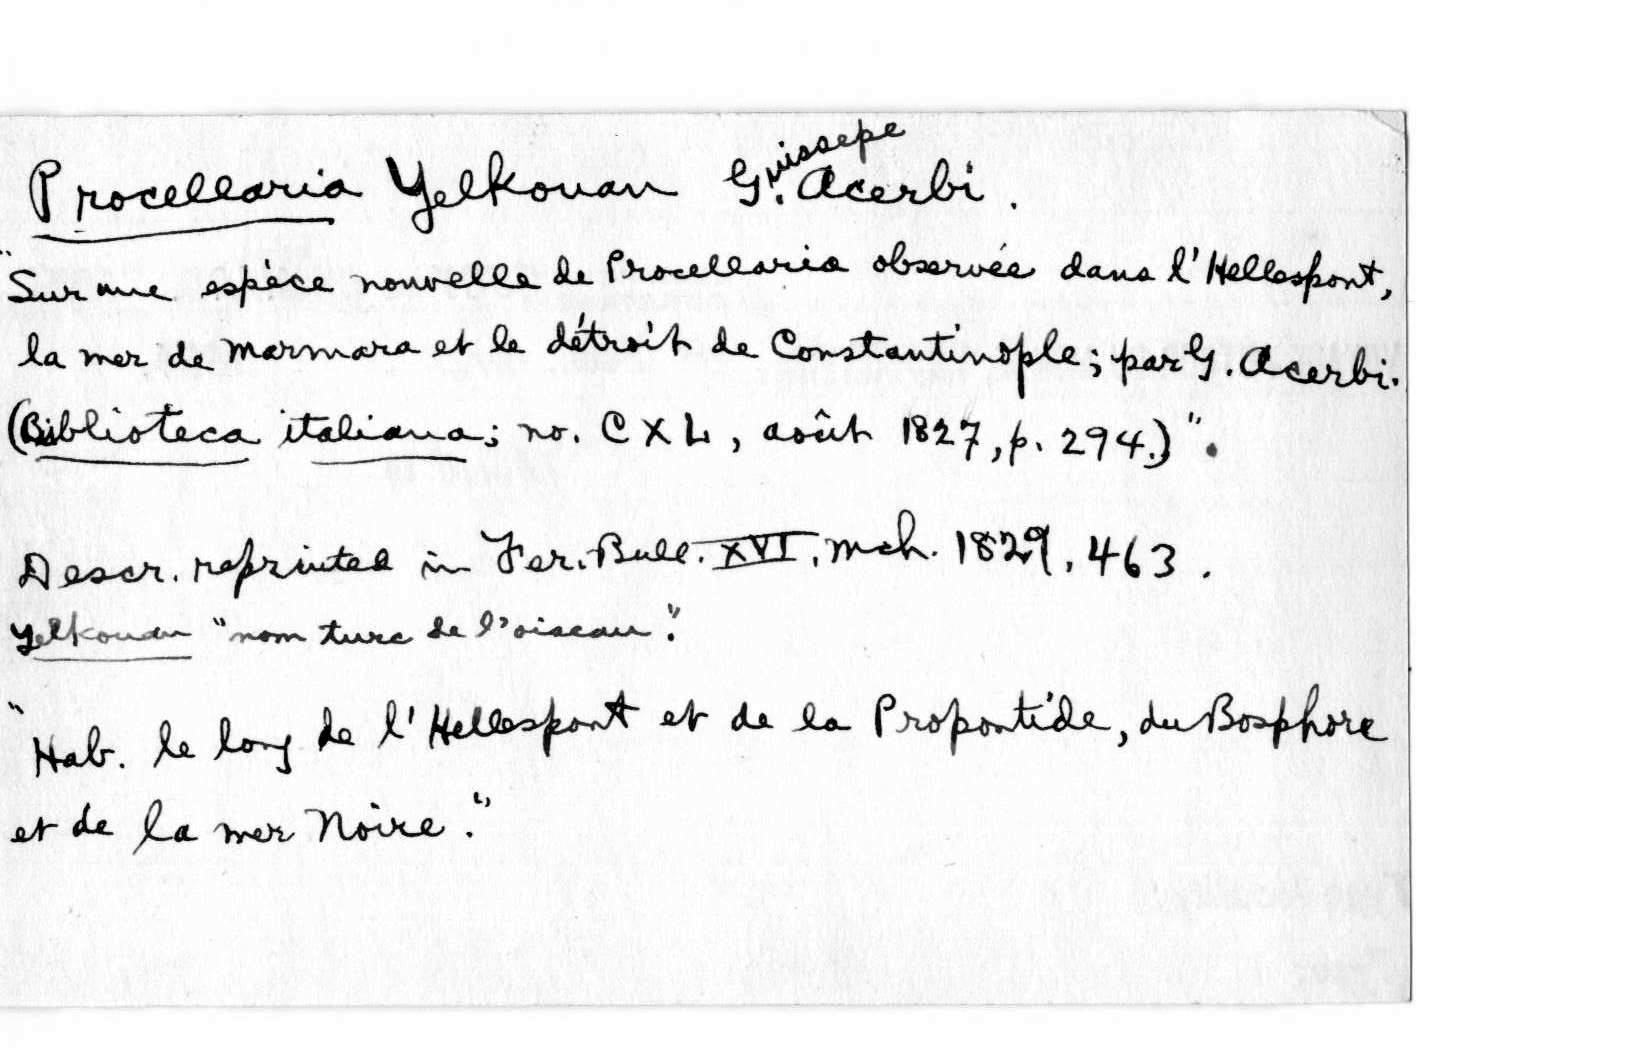 Procellaria Yelkouan G. Acerbi.
Guissepe
"Sur une espéce nouvelle de Procellaria observée dans l'Hellespont,
la mer de Marmara et le détroit de Constantinople; par G. Acerbi.
(Biblioteca italiana; no. CXL, août 1827, p. 294.)".
Descr. reprinted in Fer. Bull. XVI, Mch. 1829, 463.
Yelkouan "nom turc de l'oiseau".
"Hab. le long de l'Hellespont et de la Propontide, du Bosphore
et de la mer Noire."